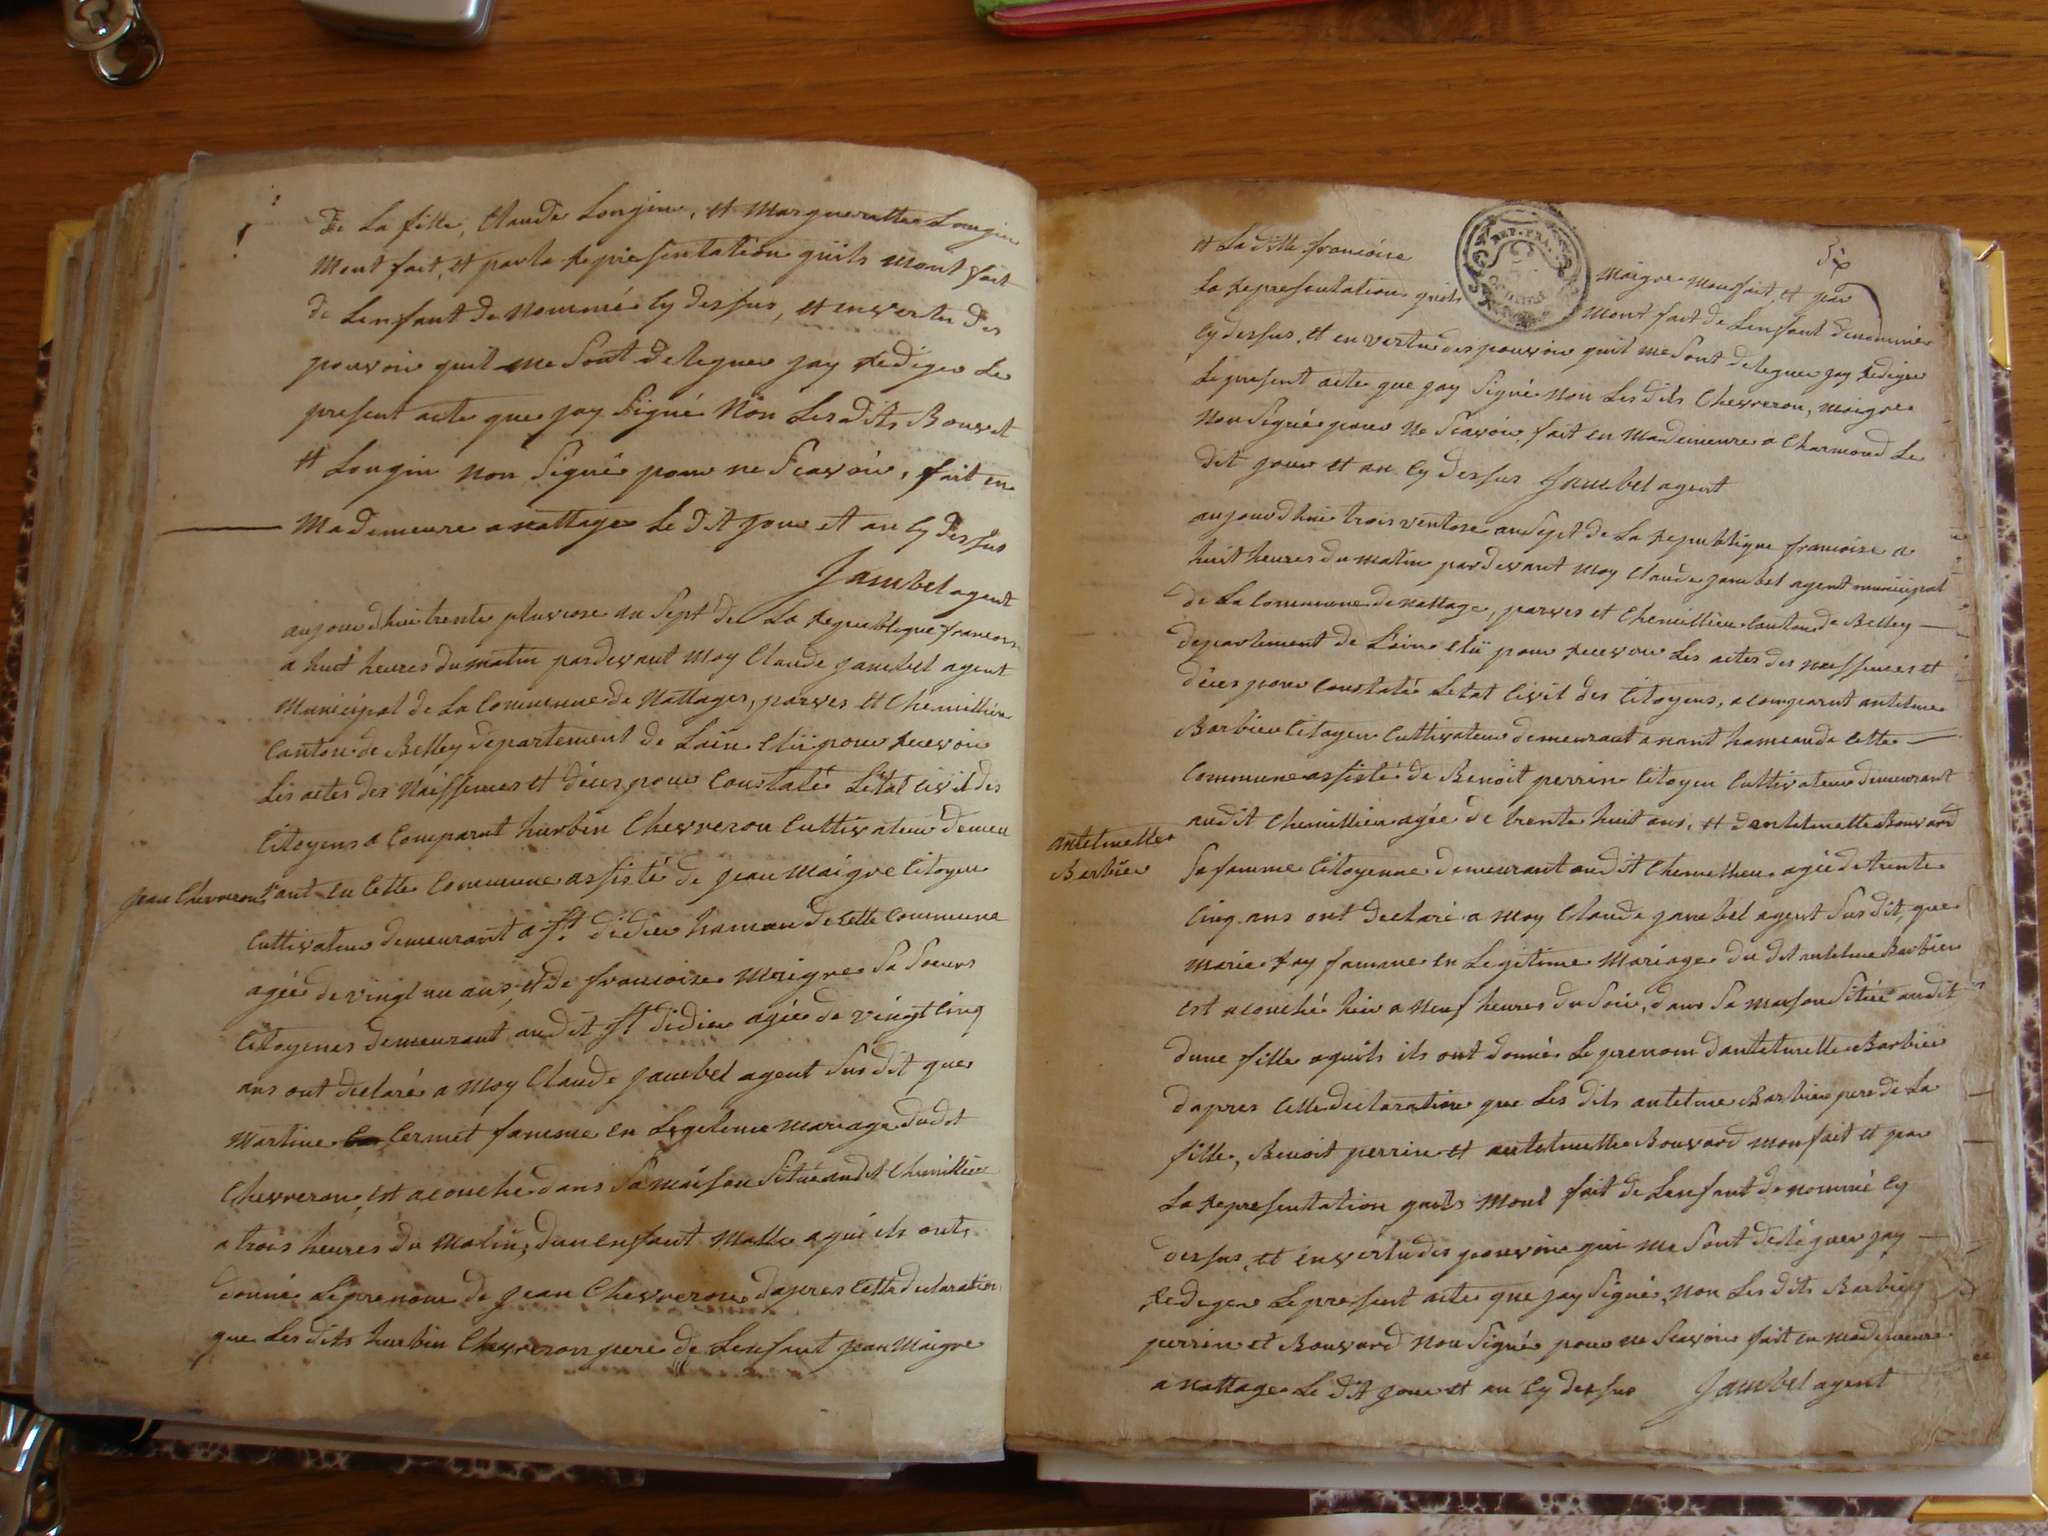 de La fille, Claude Longin, et Marguerutte Longin
Mont fait, et par la Representation quils mont fait
de Lenfant de nommé Cy dessus, et en vertu des
pouvoir quil me Sont deleguer jay Rediger Le
present acte que jay Signé Non Les dits Bouvet
et Longin non Signé pour ne Scavoir, fait en
Ma demeure a nattages Le dit jour et an Cy dessus
Jambel agent
aujourdhui trente pluviose an Sept de La Republique francoise
a huit heures du matin pardevant Moy Claude jambel agent
Municipal de La Commune de Nattages, parves et Chemillieu
Canton de Belley departement de Lain Elü pour Recevoir
Les actes des Naissances et déces pour Constaté Létat civil des
Citoyens a Comparut hurbin Chevreron Cultivateur demeu
jean Chevreron
rant en Cette Commune assisté de jean Maigre Citoyen
Cultivateur demeurant a St didier hameau de Cette Commune
agée de vingt un ans, et de francoise Maigre Sa Soeurs
Citoyenes demeurant audit St didier agée de vingt Cinq
ans ont declaré a Moy Claude jambel agent Sus dit que
Martine Cermet famme en Legitime mariage dudit
Chevreron, est acouché dans Sa maison Situé audit Chemillieu
a trois heures du Matin, dun enfant Malle a qui ils onts
donné Le prenom de jean Chevreron dapres Cette declaration
que Les dits hurbin Chevreron pere de Lenfant jean Maigre
et La ditte francoise Maigre Mon fait, et par
La Representation quils Mont fait de Lenfant denommé
Cy dessus, et en vertu des pouvoir quil me Sont deleguer jay Rediger
Le present acte que jay Signé Non Les dits Chevreron, Maigre
Non Signée pour ne Scavoir, fait en Ma demeure a Charmond Le
dit jour et an Cy dessus Jambel agent
REP. FRA.
aujourdhui trois ventose an Sept de La Republique francoise a
huit heures du matin pardevant Moy Claude jambel agent municipal
de La Commune de nattage, parves et Chemillieu Canton de Belley
departement de Lain elü pour Recevoir Les actes des naissences et
déces pour Constaté Létat Civil des Citoyens, a comparut antelme
Barbier Citoyen Cultivateur demeurant a nant hameau de Cette
Commune assisté de Benoit perrin Citoyen Cultivateur demeurant
audit Chemillieu agée de trente huit ans, et dantelmette Bouvard
antelmette
Barbier
Sa famme Citoyenne demeurant audit Chemillieu agée de trente
Cinq ans ont declaré a Moy Claude jambel agent Sus dit, que
Marie Ray famme en Legitime Mariage du dit antelme Barbier
est acouché hier a Neuf heures du Soir, dans Sa Maison Située audit
dune fille a quils ils ont donné Le prenom dantelmette Barbier
dapres Cette declaration que Les dits antelme Barbier pere de La
fille, Benoit perrin et antelmette Bouvard Mon fait et par
La Representation quils Mont fait de Lenfant de nommé Cy
dessus, et en vertu des pouvoir qui me Sont deléguer jay
Rediger Le present acte que jay Signé, Non Les dits Barbier
perrin et Bouvard Non Signée pour ne Scavoir fait en Ma demeure
a nattage Le dit jour et an Cy dessus Jambel agent